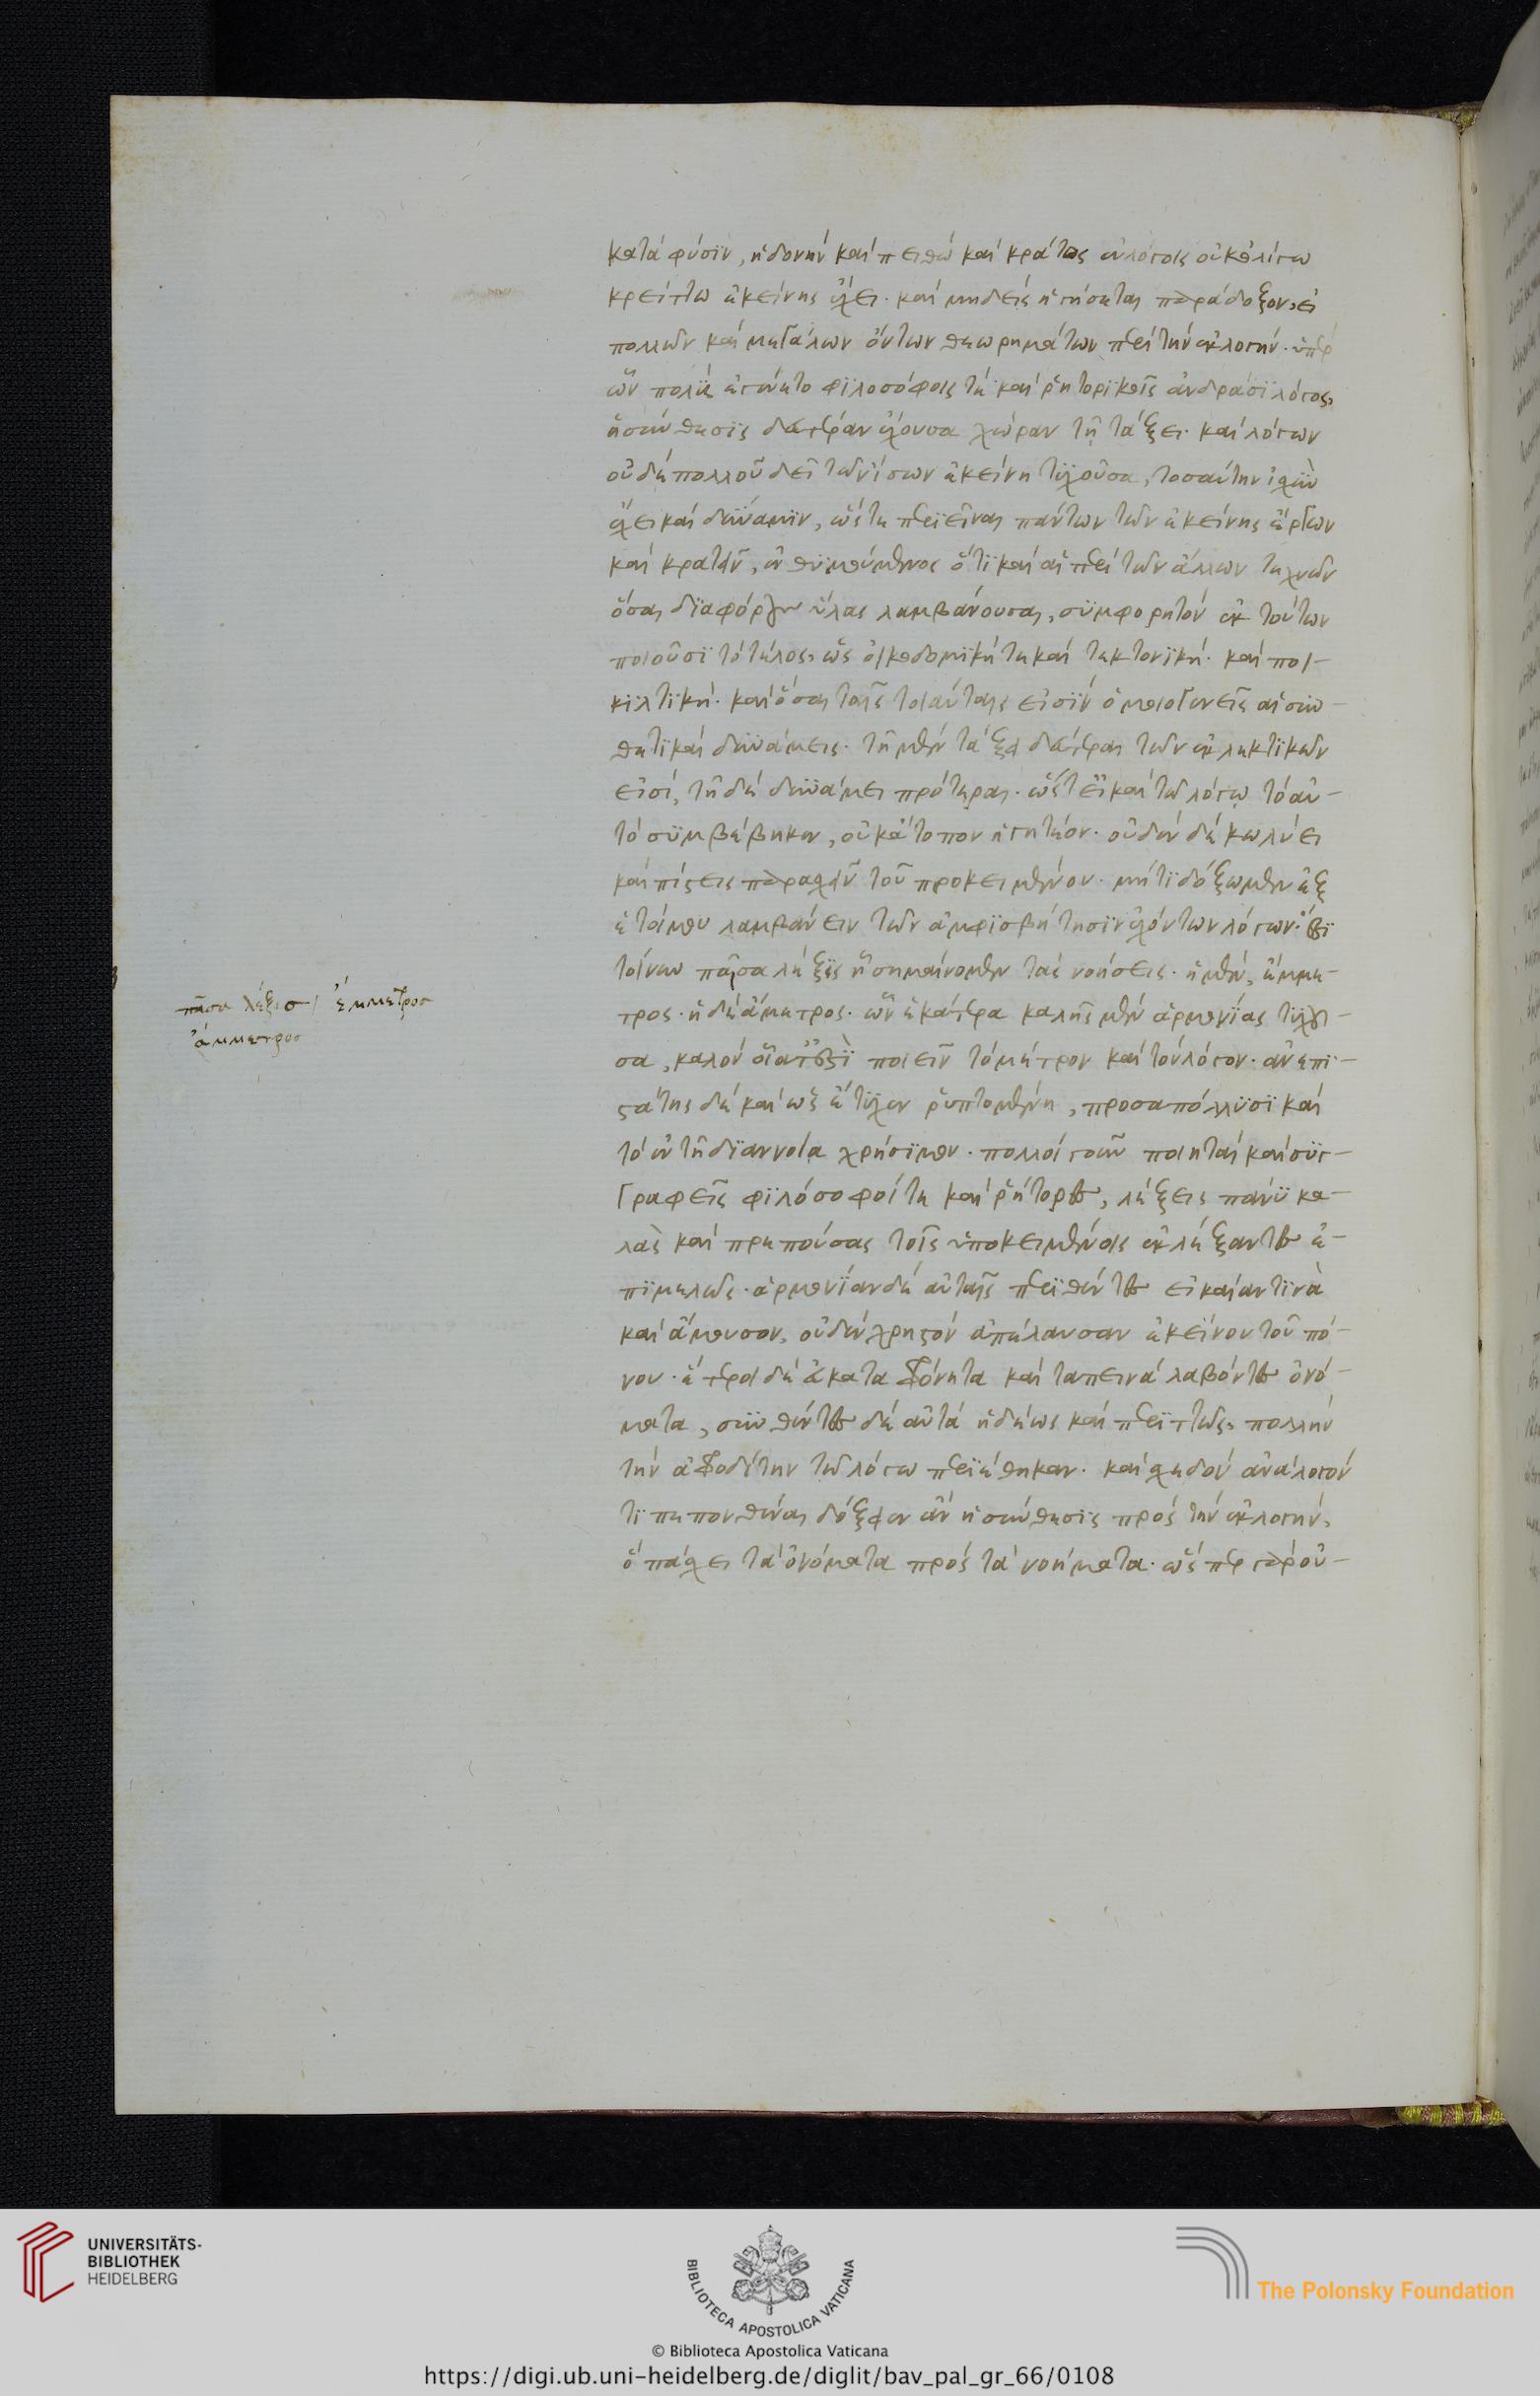 κατὰ φύσιν, ἡδονὴν καὶ πειθὼ καὶ κράτος ἐν λόγοις οὐκ ὀλίγω
κρείττω ἐκείνης ἔχει. καὶ μηδεὶς ἡγήσηται παράδοξον, εἰ
πολλῶν καὶ μεγάλων ὄντων θεωρημάτων περὶ τὴν ἐκλογήν. ὑπὲρ
ὧν πολὺς ἐγένετο φιλοσόφοις τὲ καὶ ῥητορικοῖς ἀνδράσι λόγος,
ἡ σύνθεσις δευτέραν ἔχουσα χώραν τῇ τάξει. καὶ λόγων
οὐδὲ πολλοῦ δεῖ τῶν ἴσων ἐκείνῃ τυχοῦσα, τοσαύτην ἰσχὺν
ἔχει καὶ δύναμιν, ὥστε περιεῖναι πάντων τῶν ἐκείνης ἔργων
καὶ κρατεῖν, ἐνθυμούμενος ὅτι καὶ αἱ περὶ τῶν ἄλλων τεχνῶν
ὅσαι διαφόρους ὕλας λαμβάνουσαι, συμφορητὸν ἐκ τούτων
ποιοῦσι τὸ τέλος, ὡς οἰκοδομική τε καὶ τεκτονική. καὶ ποι-
κιλτική. καὶ ὅσαι ταῖς τοιαύταις εἰσὶν ὁμοιογενεῖς αἱ συν-
θετικαὶ δυνάμεις. τῇ μὲν τάξει δεύτεραι τῶν ἐκλεκτικῶν
εἰσί, τῇ δὲ δυνάμει πρότεραι. ὥστ' εἰ καὶ τῶ λόγω τὸ αὐ-
τὸ συμβέβηκεν, οὐκ ἄτοπον ἡγητέον. οὐδὲν δὲ κωλύει
καὶ πίστεις παρασχεῖν τοῦ προκειμένου. μή τι δόξωμεν ἐξ
ἑτοίμου λαμβάνειν τῶν ἀμφισβήτησιν ἐχόντων λόγων. ἔστι
τοίνυν πᾶσα λέξις ᾗ σημαίνομεν τὰς νοήσεις. ἡ μὲν, ἔμμε-
τρος. ἡ δὲ ἄμετρος. ὧν ἑκάτερα καλῆς μὲν ἁρμονίας τυχοῦ-
σα, καλὸν οἵα τ' ἐστὶ ποιεῖν τὸ μέτρον καὶ τὸν λόγον. ἀνεπι-
στάτης δὲ καὶ ὡς ἔτυχεν ῥιπτομένη, προσαπόλλυσι καὶ
τὸ ἐν τῇ διαννοία χρήσιμον. πολλοὶ γοῦν ποιηταὶ καὶ συγ-
γραφεῖς φιλόσοφοί τε καὶ ῥήτορες, λέξεις πάνυ κα-
λὰς καὶ πρεπούσας τοῖς ὑποκειμένοις ἐκλέξαντες ἐ-
πιμελῶς. ἁρμονίαν δὲ αὐταῖς περιθέντες εἰκαίαν τινὰ
καὶ ἄμουσον, οὐδὲν χρηστὸν ἀπέλαυσαν ἐκείνου τοῦ πό-
νου. ἕτεροι δὲ εὐκαταφρόνητα καὶ ταπεινὰ λαβόντες ὀνό-
ματα, συνθέντες δὲ αὐτὰ ἡδέως καὶ περιττῶς, πολλὴν
τὴν ἀφροδίτην τῶ λόγω περιέθηκαν. καὶ σχεδὸν ἀνάλογόν
τι πεπονθέναι δόξειεν ἂν ἡ σύνθεσις πρὸς τὴν ἐκλογήν,
ὃ πάσχει τὰ ὀνόματα πρὸς τὰ νοήματα. ὥσπερ γὰρ οὐ-
πᾶσα λέξισ / ἔμμετροσ
ἄμμετροσ
UNIVERSITÄTS-
BIBLIOTHEK
HEIDELBERG
BIBLIOTECA APOSTOLICA VATICANA
The Polonsky Foundation
© Biblioteca Apostolica Vaticana
https://digi.ub.uni-heidelberg.de/diglit/bav_pal_gr_66/0108